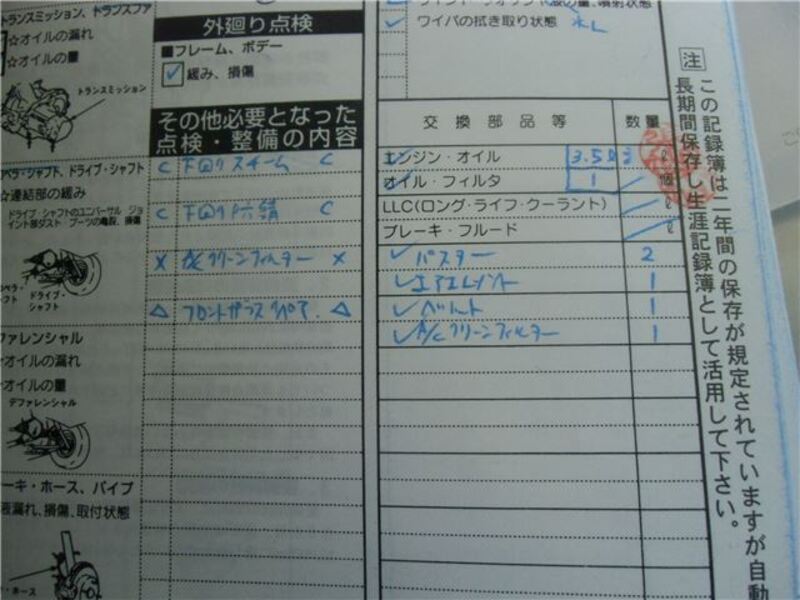 トランスミッション、トランスファ
☆オイルの漏れ
☆オイルの量
トランスミッション
ペラ・シャフト、ドライブ・シャフト
☆連結部の緩み
ドライブ・シャフトのユニバーサル ジョ
イント部ダスト ブーツの亀裂、損傷
ペラ・
フト
ドライブ・
シャフト
ファレンシャル
オイルの漏れ
オイルの量
デファレンシャル
ーキ・ホース、パイプ
液漏れ、損傷、取付状態
・ホース
外廻り点検
■フレーム、ボデー
✓ 緩み、損傷
その他必要となった
点検・整備の内容
C 下回りスチーム C
C 下回り C
X A/Cクリーンフィルター X
△ フロントガラスリペア △
✓ ワイパの拭き取り状態
交換部品等 数量
エンジン・オイル 3.5 ℓ
オイル・フィルタ 1 個
LLC(ロング・ライフ・クーラント) ℓ
ブレーキ・フルード ℓ
✓ バスター 2
✓ エアエレメント 1
✓ ベルト 1
✓ A/Cクリーンフィルター 1
注
この記録簿は二年間の保存が規定されていますが自動
長期間保存し生涯記録簿として活用して下さい。